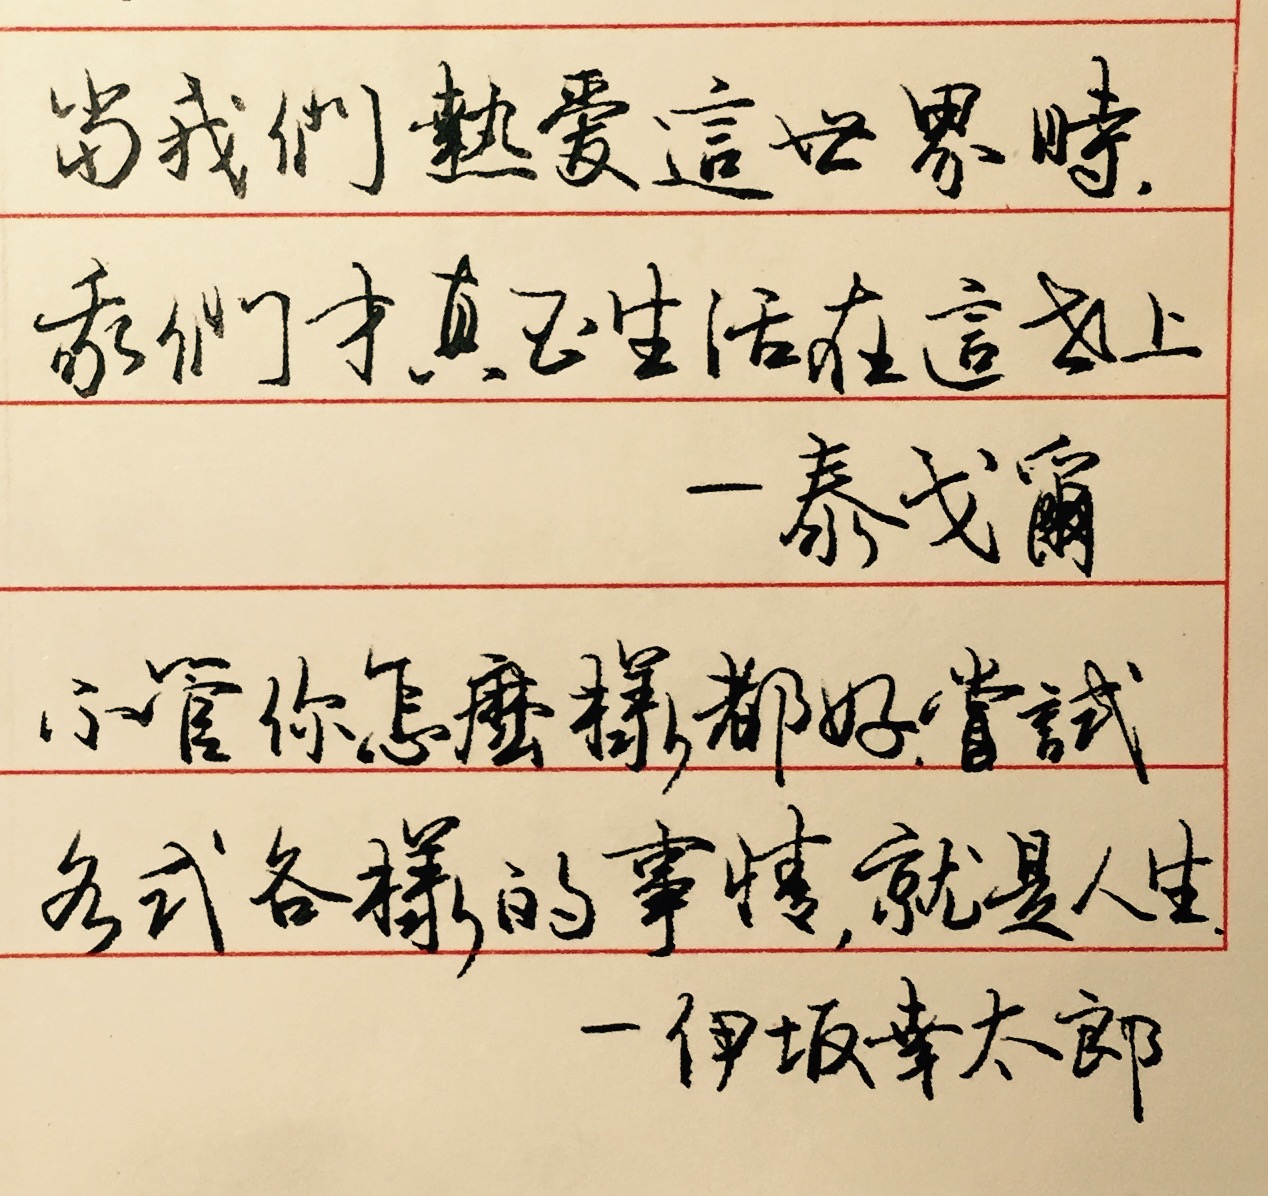 當我們熱愛這世界時.
我們才真正生活在這世上
一泰戈爾
不管你怎麼樣都好.嘗試
各式各樣的事情,就是人生.
一伊坂幸太郎